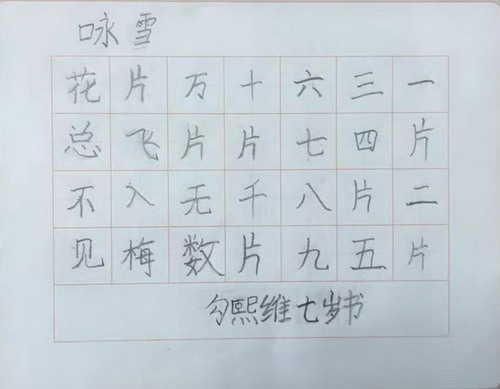 咏雪
一片二片
三四片五
六七八九
十片千片
万片无数
片飞入梅
花总不见
勾熙维七岁书